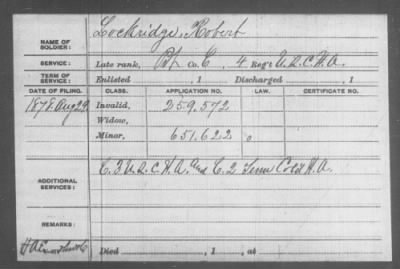 NAME OF SOLDIER: Lockridge, Robert
SERVICE: Late rank, Pvt Co. C, 4 Reg't U.S.C.H.A.
TERM OF SERVICE: Enlisted , 1 Discharged , 1
DATE OF FILING. CLASS. APPLICATION NO. LAW. CERTIFICATE NO.
1878. Aug 29 Invalid, 259.572
Widow,
Minor, 651.622
ADDITIONAL SERVICES: C. 3 U.S.C.H.A. and C. 2 Tenn Cold H.A.
REMARKS:
Died , 1 , at